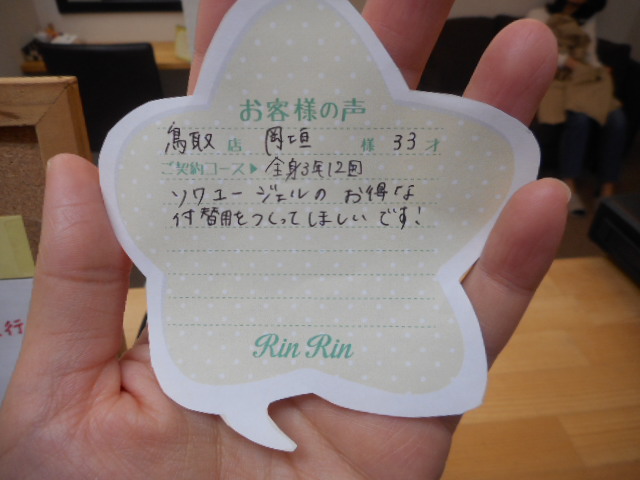 お客様の声
鳥取店 岡垣様 33才
ご契約コース▶全身3年12回
ソワユージェルのお得な
付替用をつくってほしいです!
Rin Rin
行